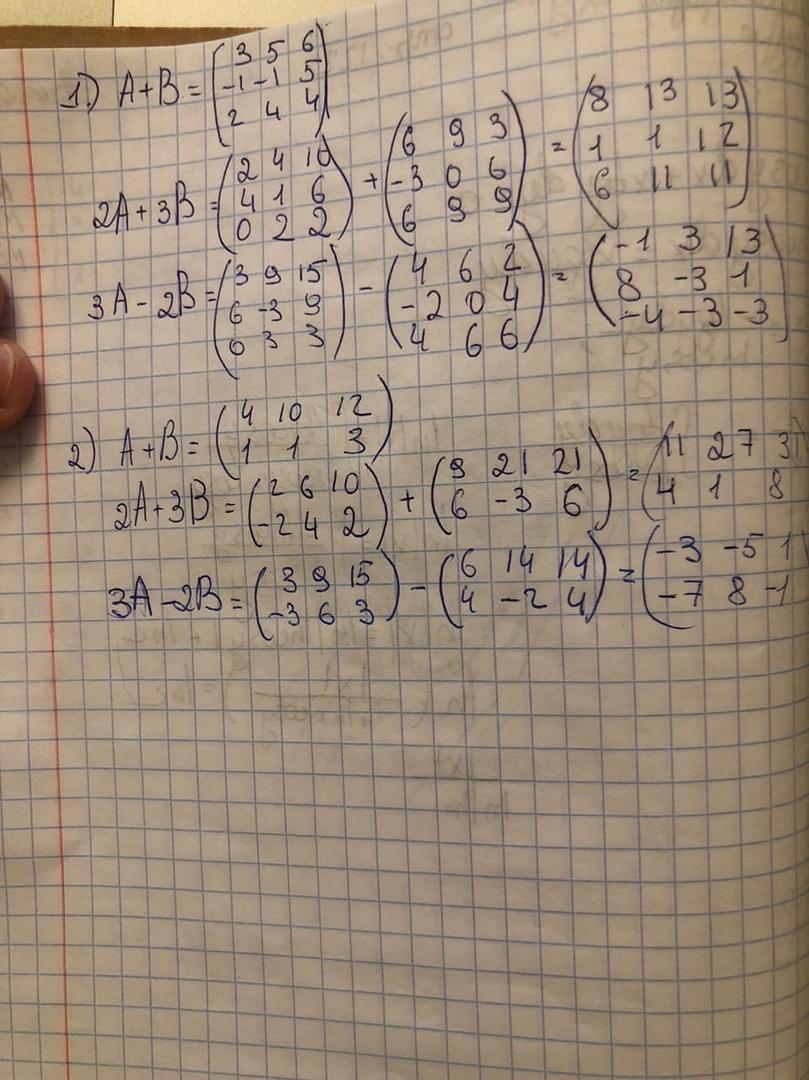 1) A+B = (3 5 6
-1 -1 5
2 4 4)
2A+3B = (2 4 10
4 1 6
0 2 2) + (6 9 3
-3 0 6
6 9 9) = (8 13 13
1 1 12
6 11 11)
3A-2B = (3 9 15
6 -3 9
0 3 3) - (4 6 2
-2 0 4
4 6 6) = (-1 3 13
8 -3 1
-4 -3 -3)
2) A+B = (4 10 12
1 1 3)
2A+3B = (2 6 10
-2 4 2) + (9 21 21
6 -3 6) = (11 27 31
4 1 8
3A-2B = (3 9 15
-3 6 3) - (6 14 14
4 -2 4) = (-3 -5 1
-7 8 -1